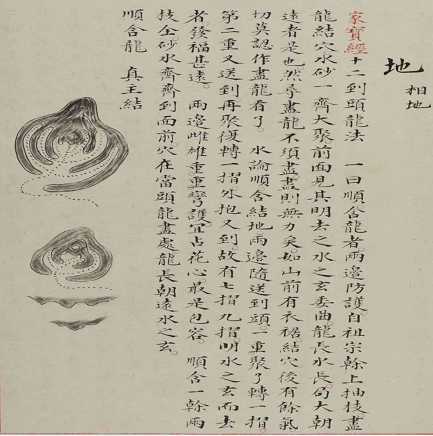 地 相地
家寶經十二到頭龍法 一曰順含龍者兩邊防護自祖宗幹上抽枝盡
龍結穴水砂一齊大聚前面見其明去之水之玄委曲龍長水長局大朝
遠者是也然尋盡龍不須盡盡則無力矣如山前有衣裾結穴後有餘氣
切莫認作盡龍看了 水論順含結地兩邊隨送到頭一重聚了轉一摺
第二重又送到再聚復轉一摺外抱又到故有七摺九摺明水之玄而去
者發福甚遠 兩邊雌雄重重彎護宜占花心最是包容 順含一幹兩
技全砂水齊齊到面前穴在當頭龍盡處龍長朝遠水之玄
順含龍 真主結